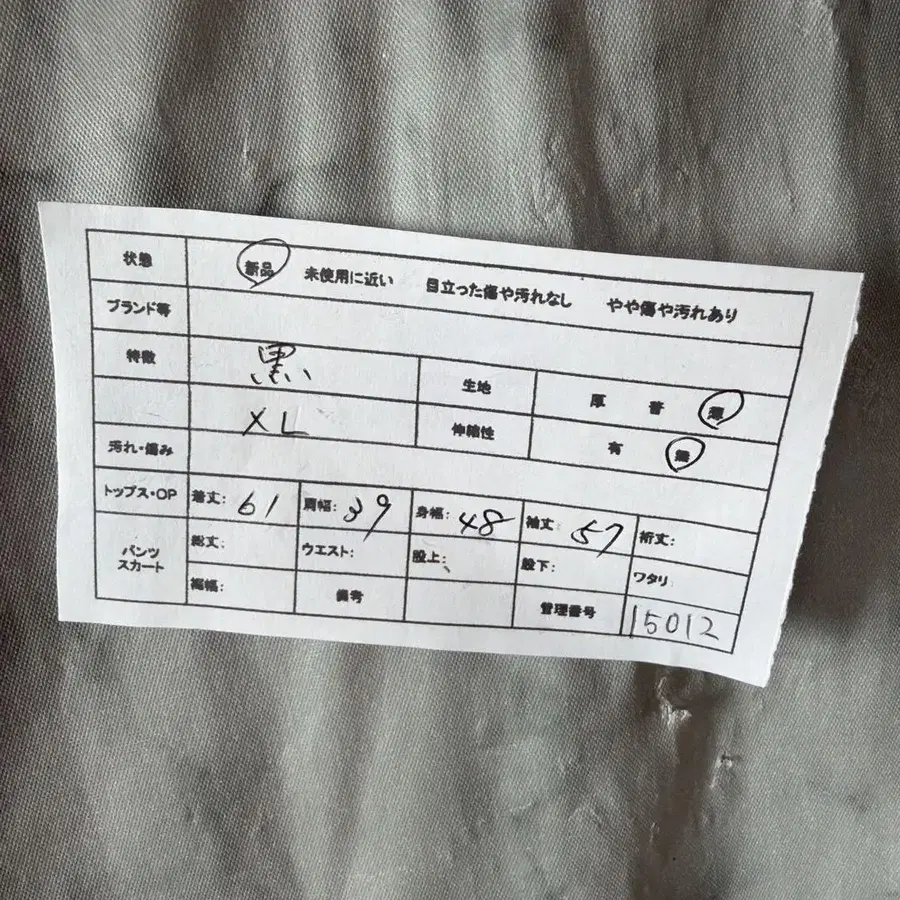 状態 新品 未使用に近い 目立った傷や汚れなし やや傷や汚れあり
ブランド等
特徴 黒 生地 厚 普 薄
XL 伸縮性 有 無
汚れ・傷み
トップス・OP 着丈: 61 肩幅: 39 身幅: 48 袖丈: 57 裄丈:
パンツ スカート 総丈: ウエスト: 股上: 股下: ワタリ:
裾幅: 備考 管理番号 15012